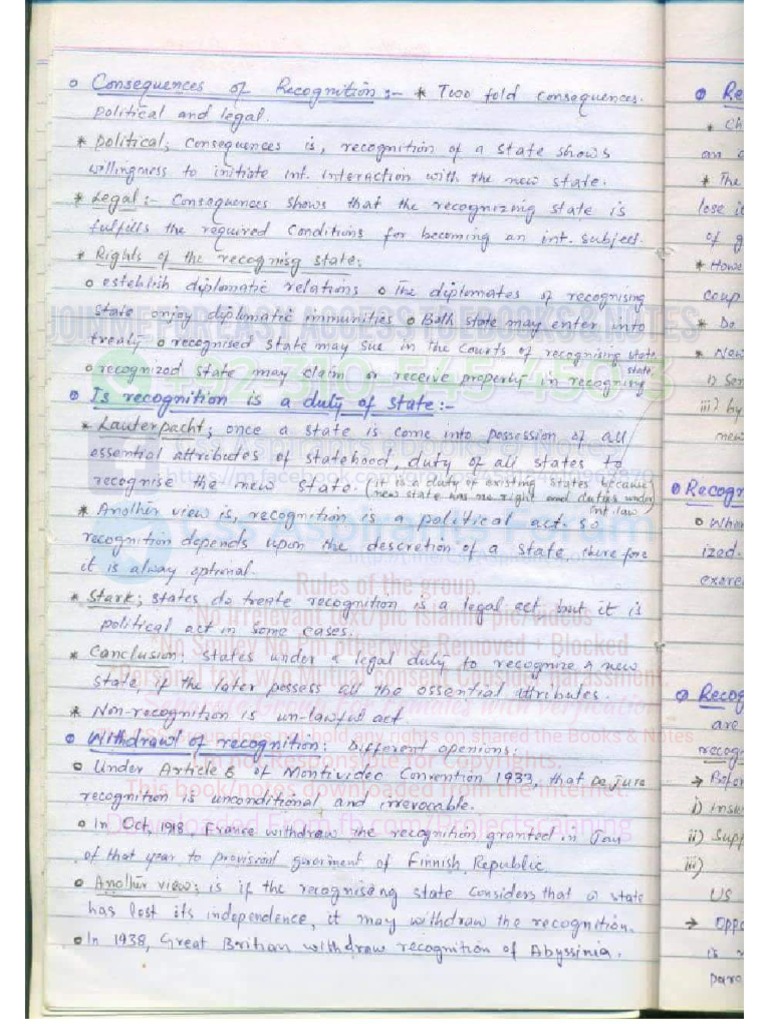 o Consequences of Recognition:- * Two fold consequences.
political and legal.
* political; consequences is, recognition of a state shows
willingness to initiate int. interaction with the new state.
* Legal:- Consequences shows that the recognizing state is
fulfills the required conditions for becoming an int. subject.
* Rights of the recognisg state:
o establish diplomatic relations o The diplomates of recognising
state enjoy diplomatic immunities o Both state may enter into
treaty o recognised state may sue in the courts of recognising state.
o recognized state may claim or receive property in recogning state
o Is recognition is a duty of state:-
* Lauterpacht; once a state is come into possession of all
essential attributes of statehood, duty of all states to
recognise the new state. (it is a duty of existing states because
new state has no right and duties under
int. law)
* Another view is, recognition is a political act. so
recognition depends upon the descretion of a state therefore
it is alway optional.
* Stark; states do treate recognition is a legal act but it is
political act in some cases.
* Conclusion: states under a legal duty to recognize a new
state, if the later possess all the essential attributes.
* Non-recognition is un-lawful act.
o Withdrawl of recognition: Different openions:
o Under Article 6 of Montividec Convention 1933, that De Jure
recognition is unconditional and irrevocable.
o In Oct, 1918, France withdraw the recognition granted in Jan
of that year to provisional goverment of Finnish Republic.
o Another view; is if the recognising state considers that a state
has lost its independence, it may withdraw the recognition.
o In 1938, Great Britian withdraw recognition of Abyssinia.
JOIN ME FOR EASY ACCESS TO EBOOKS & NOTES
+92-310-545-450-3
Css Aspirants Forum
Rules of the group.
*No Irrelevant text/pic Islamic pic/videos
*No Spam/ No Spm otherwise Removed + Blocked
*Personal text w/o Mutual consent Consider harassment.
Separate Group For Females with verification
not hold any rights on shared the Books & Notes
I'm not Responsible for Copyrights.
This book/notes downloaded from the internet.
o Re
* Ch
an
* The
lose it
of g
* Howe
coup
* Do
* New
i) Ser
iii) by
new
o Recogn
o When
ized.
exerc
o Recog
are
recogn
→ Befor
i) Insur
ii) Supp
iii)
US
→ Oppo
is
paro